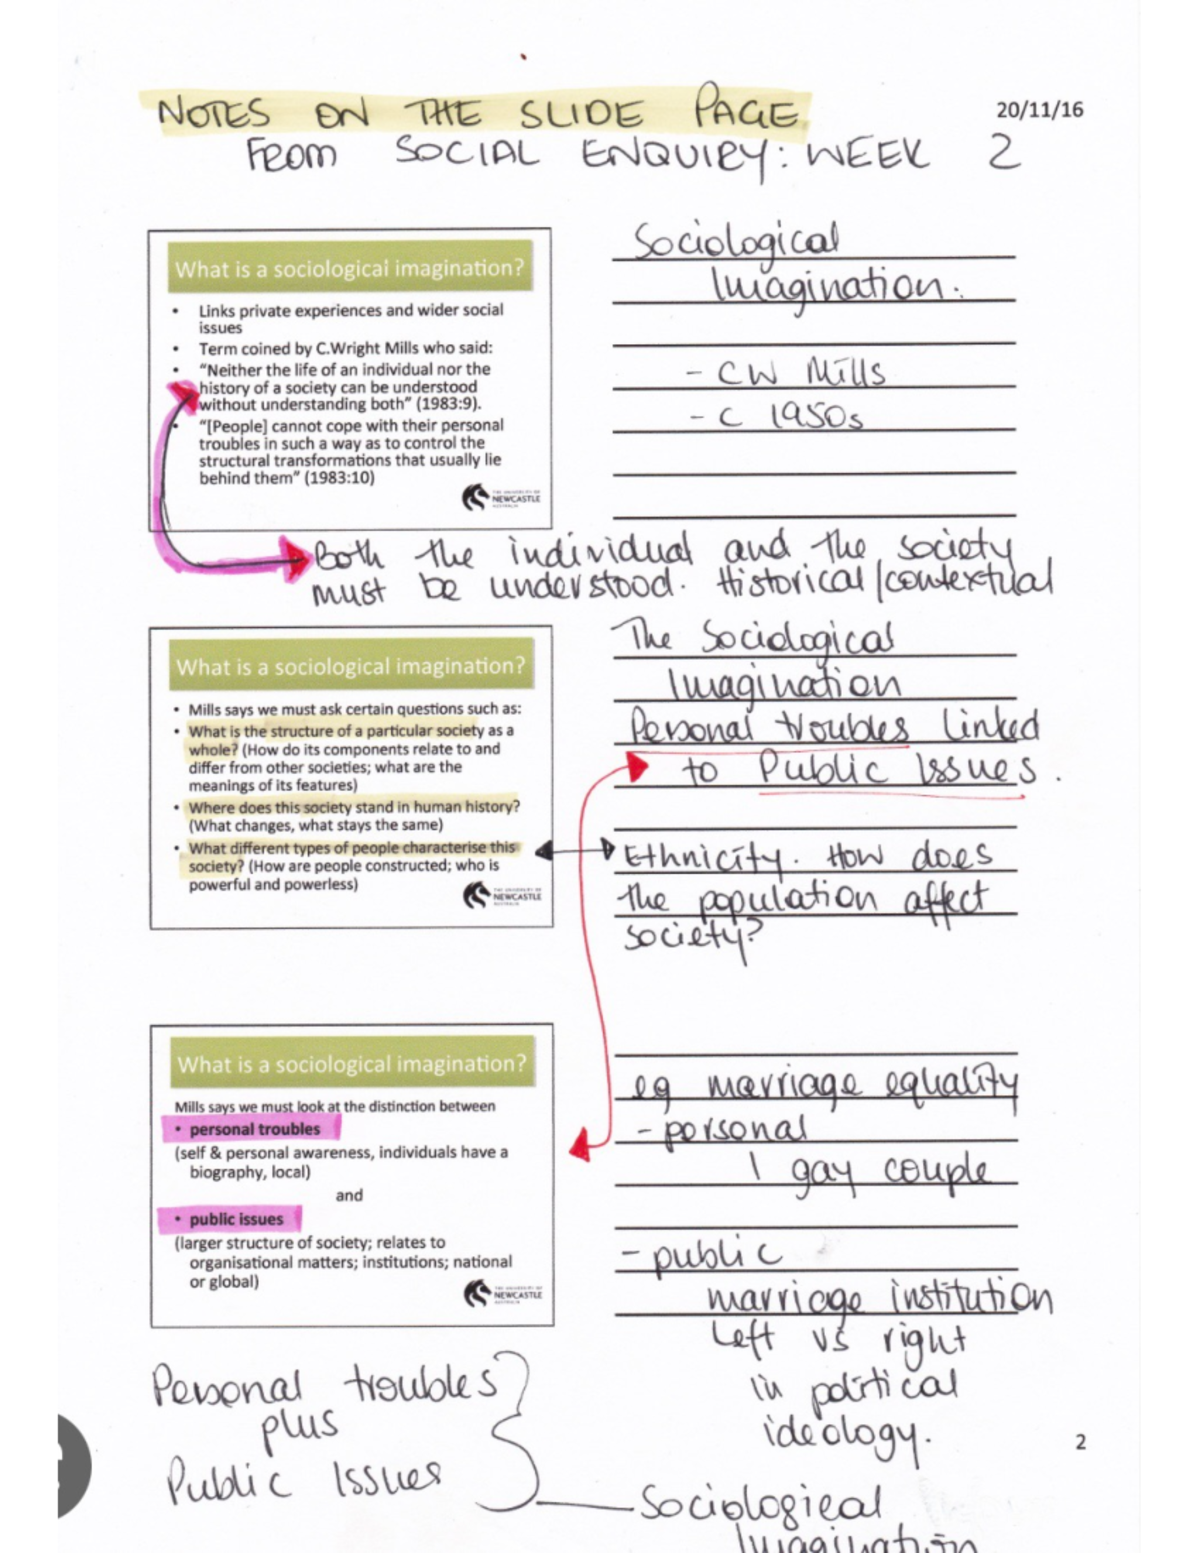 NOTES ON THE SLIDE PAGE
20/11/16
FROM SOCIAL ENQUIRY: WEEK 2
What is a sociological imagination?
• Links private experiences and wider social
issues
• Term coined by C.Wright Mills who said:
• "Neither the life of an individual nor the
history of a society can be understood
without understanding both" (1983:9).
• "[People] cannot cope with their personal
troubles in such a way as to control the
structural transformations that usually lie
behind them" (1983:10)
THE UNIVERSITY OF
NEWCASTLE
AUSTRALIA
Sociological
Imagination.
- CW Mills
- C 1950s
Both the individual and the society
must be understood. Historical/contextual
What is a sociological imagination?
• Mills says we must ask certain questions such as:
• What is the structure of a particular society as a
whole? (How do its components relate to and
differ from other societies; what are the
meanings of its features)
• Where does this society stand in human history?
(What changes, what stays the same)
• What different types of people characterise this
society? (How are people constructed; who is
powerful and powerless)
THE UNIVERSITY OF
NEWCASTLE
AUSTRALIA
The Sociological
Imagination
Personal troubles linked
to Public Issues.
Ethnicity. How does
the population affect
society?
What is a sociological imagination?
Mills says we must look at the distinction between
• personal troubles
(self & personal awareness, individuals have a
biography, local)
and
• public issues
(larger structure of society; relates to
organisational matters; institutions; national
or global)
THE UNIVERSITY OF
NEWCASTLE
AUSTRALIA
eg marriage equality
- personal
1 gay couple
- public
marriage institution
Left vs right
in political
ideology.
Personal troubles
plus
Public Issues
2
Sociological
Imagination